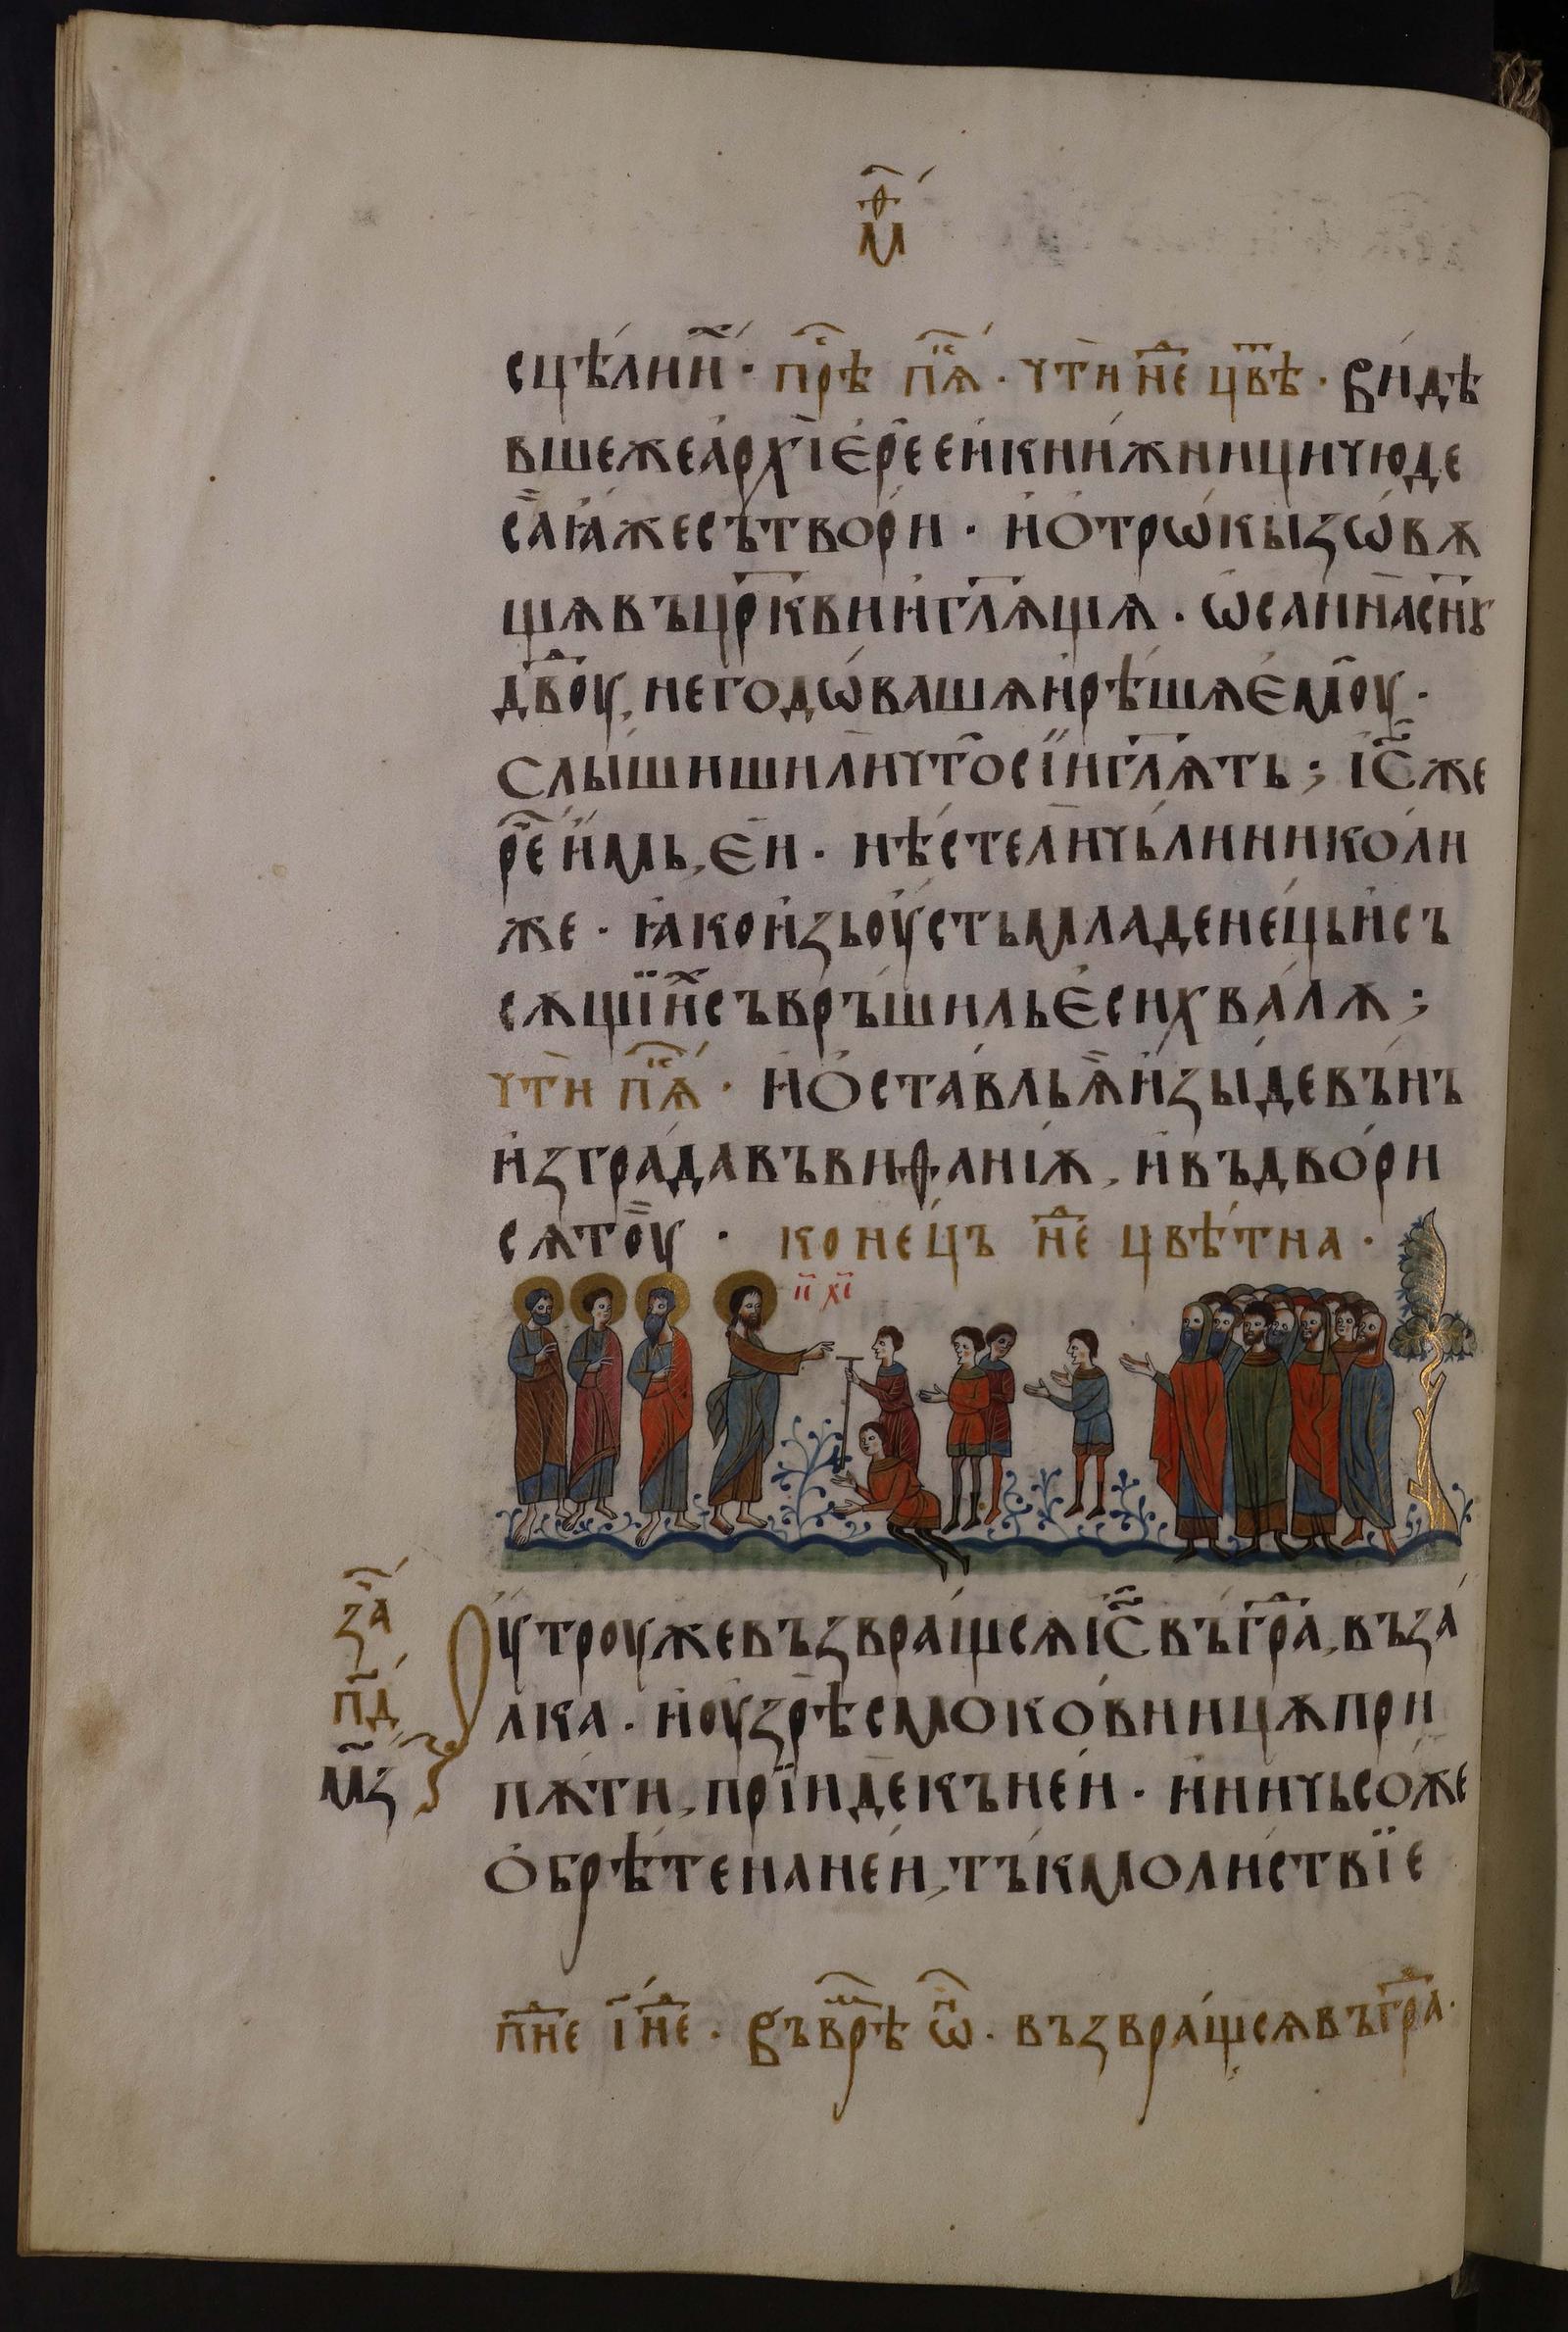 м҃ѳ
сцѣли ѝ҃ · прѣ пⷭ҇ѧ · чт̀и нⷣе цвⷮѣ · Ви́дѣ
вшежеа҆рхїє҆ре́еи҆кни́жници чюде
са̀ꙗ҆́жесътвори́ · и҆ѻ҆трѡ́кызѡвѫ
щѧвъцр҃кви и҆гл҃ѧщѧ · ѡ҆са́нна̀сн҃ꙋ
дв҃доу, негодѡ́вашѧи҆рѣ́шѧє҆моу̑ ·
Слы́шишили̏ что̑сїи гл҃ѧть ; і҆с҃же
реⷱ и҆́мь, єи · нѣ́стели̏чьлиниколи́
же · ꙗ҆коиꙁьоу҆́стьмладене́цьи҆съ
сѫщїи́хсъвръши́льє҆сихва́лѫ ;
чт̀и пⷭ҇ѧ · и҆ѻ҆ста́вльѧ̏и҆ꙁы́девъ́нъ
и҆ꙁгра́давъвиѳа́нїѫ, и҆въдвори́
сѧто̏у · коне́цъ нⷣе цвѣ́тнаа ·
п҃ х҃і
Оу́троужевъꙁвра́щсѧі҆с҃въ́граⷣ, въꙁа́
лка · и҆оу҆ꙁрѣ̀смоко́вницѫпри
пѫ́ти, прїи́декъне́и · и҆ничьсо́же
ѻ҆брѣ́тенане́и, тъ́кмоли́ствїе
ꙁаⷱ҇
п҃д
м҃ꙁ
пⷪнⷣе і҃ нⷣе · Въвр̑ѣ ѡ҆́н · въꙁвра́щсѧвъграⷣ ·